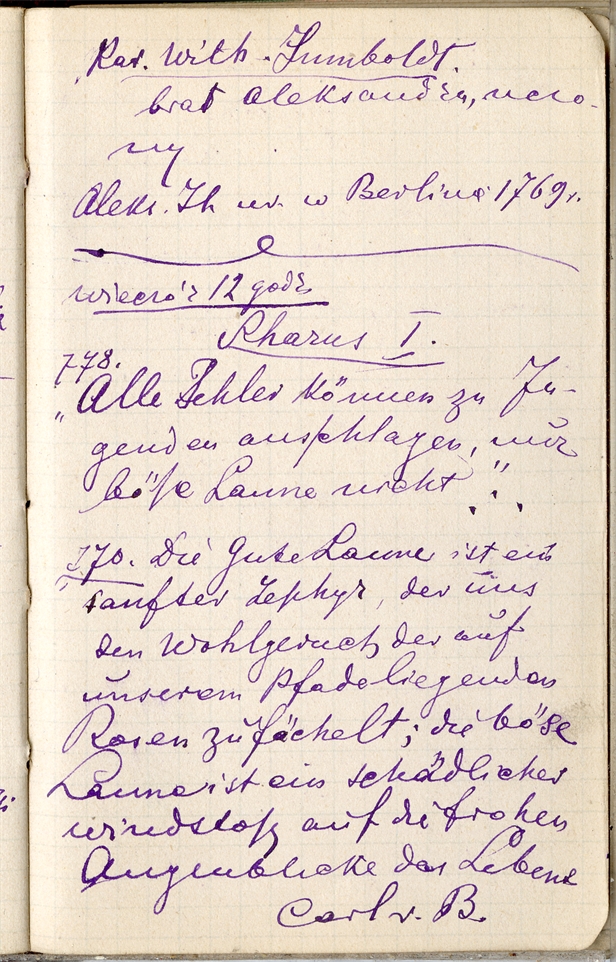 Kar. Wilh. Humboldt.
brat Aleksandra, uczo-
ny
Aleks. H. ur. w Berlinie 1769 r.
wieczór 12 godz
Pharus I.
778.
„Alle Fehler können zu Ju-
genden anschlagen, nur
böse Laune nicht".
170. Die Gute Laune ist ein
sanfter Zephyr, der uns
den Wohlgeruch der auf
unserem Pfade liegenden
Rosen zufächelt; die böse
Laune ist ein schädlicher
windstoß auf die frohen
Augenblicke des Lebens
Carl v. B.